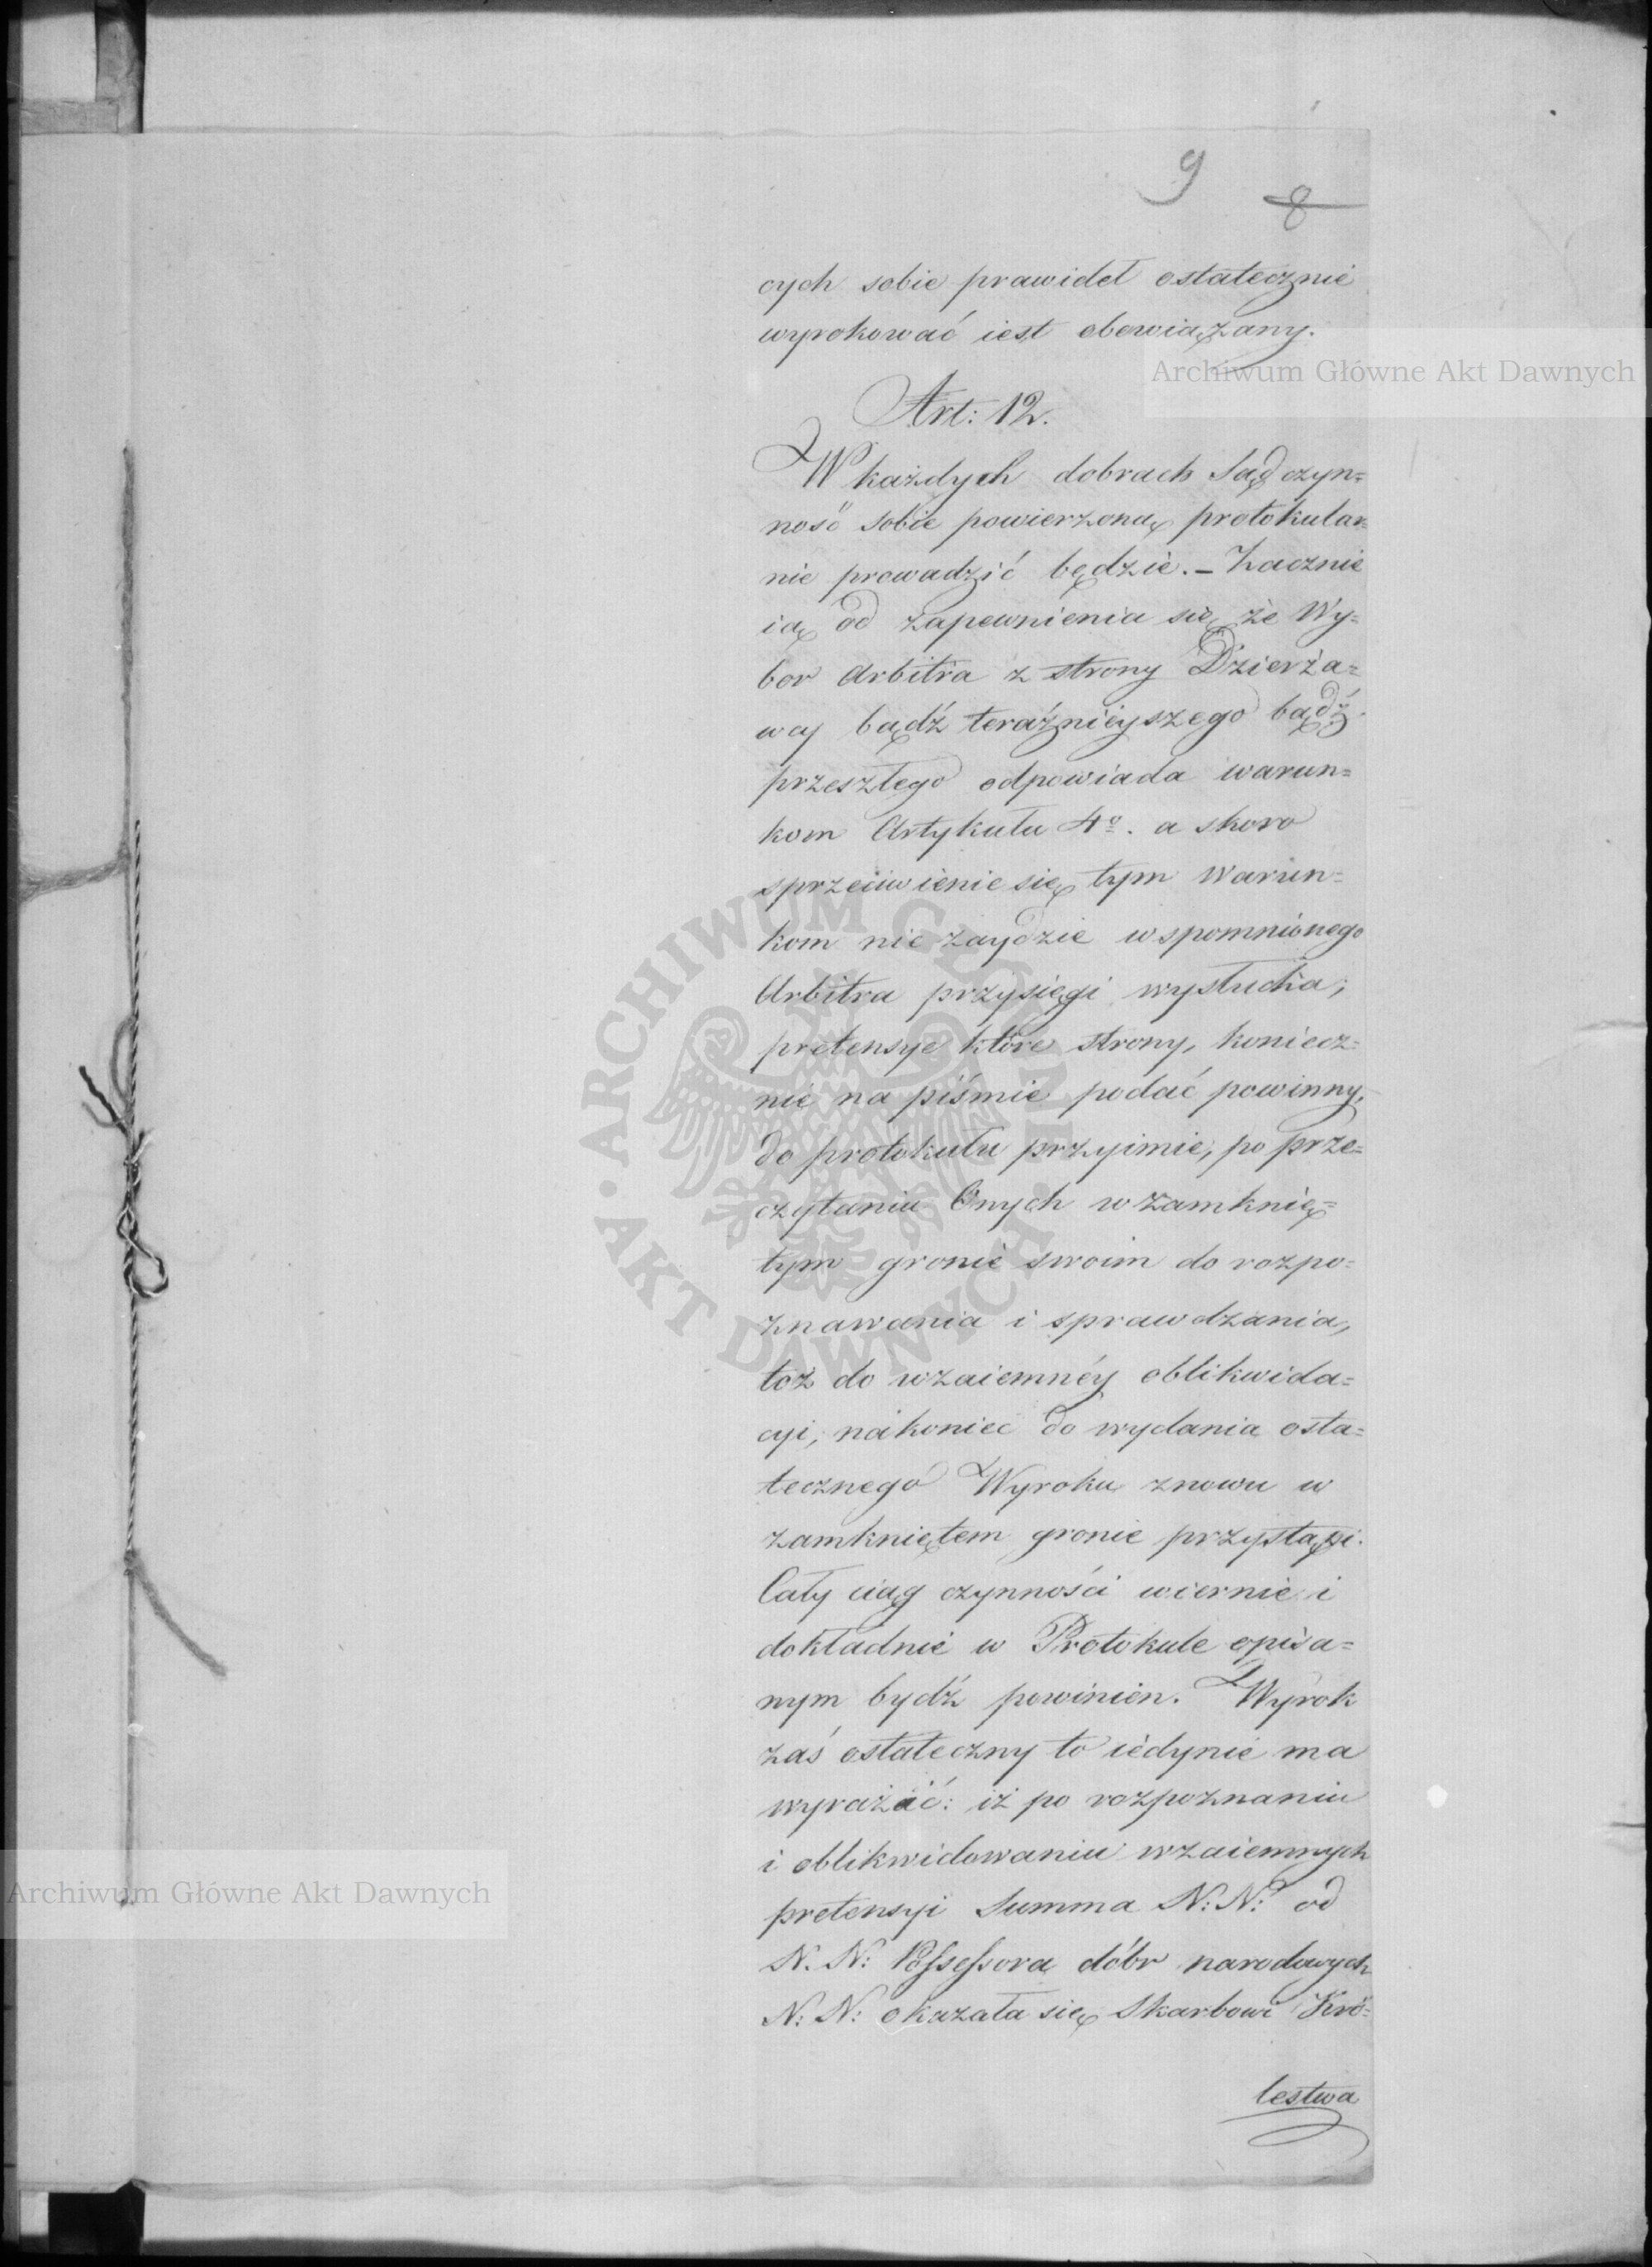 9 8
cych sobie prawideł ostatecznie
wyrokować iest obowiązany.
Art: 12.
W każdych dobrach Sąd czyn=
ność sobie powierzoną protokular=
nie prowadzić będzie. – Zacznie
ią od zapewnienia się że Wy=
bor Arbitra z strony Dzierża=
wcy bądź teraźnieyszego bądź
przeszłego odpowiada warun=
kom Artykułu 4º. a skoro
sprzeciwienie się tym warun=
kom nie zaydzie wspomnionego
Arbitra przysięgi wysłucha;
pretensye które strony, koniecz=
nie na piśmie podać powinny,
do protokułu przyimie, po prze=
czytaniu Onych w zamknię=
tym gronie swoim do rozpo=
znawania i sprawdzania,
toż do wzaiemnéy oblikwida=
cyi, nakoniec do wydania osta=
tecznego Wyroku znowu w
zamkniętem gronie przystąpi.
Cały ciąg czynności wiernie i
dokładnie w Protokule opisa=
nym bydź powinien. Wyrok
zaś ostateczny to iedynie ma
wyrażać: iż po rozpoznaniu
i oblikwidowaniu wzaiemnych
pretensyi Summa N: N: od
N. N: Possessora dóbr narodowych
N: N: okazała się Skarbowi Kró=
lestwa
Archiwum Główne Akt Dawnych
Archiwum Główne Akt Dawnych
ARCHIWUM GŁÓWNE AKT DAWNYCH